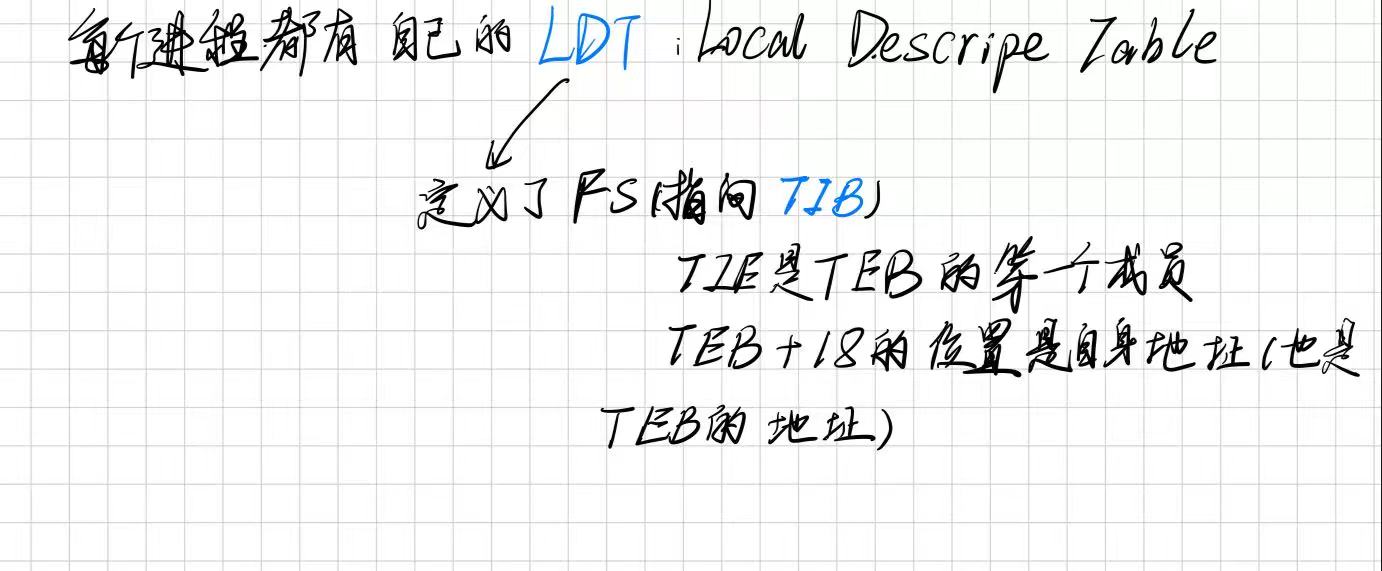 每个进程都有自己的 LDT : Local Descripe Table
定义了 FS(指向 TIB)
TIE是TEB的第一个成员
TEB+18的位置是自身地址(也是
TEB的地址)